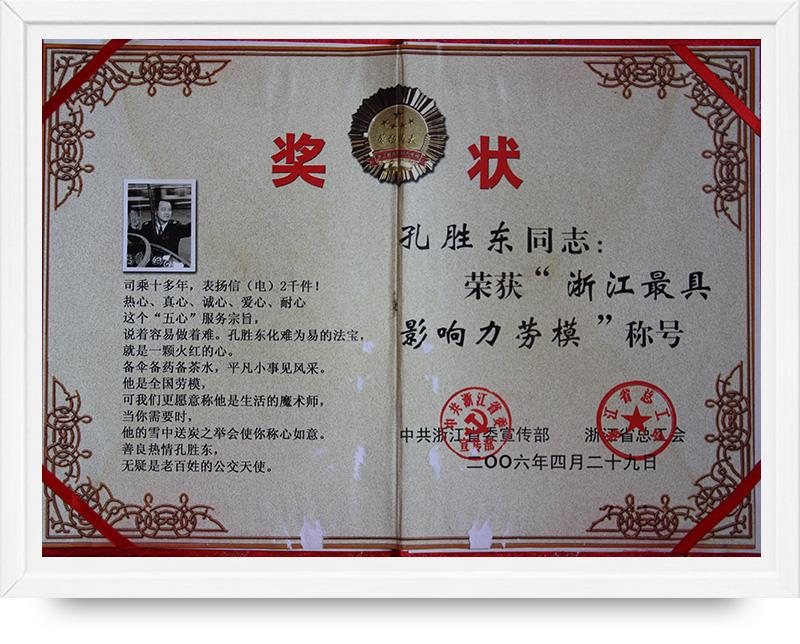 奖状
司乘十多年，表扬信（电）2千件！
热心、真心、诚心、爱心、耐心
这个“五心”服务宗旨，
说着容易做着难。孔胜东化难为易的法宝，
就是一颗火红的心。
备伞备药备茶水，平凡小事见风采。
他是全国劳模，
可我们更愿意称他是生活的魔术师，
当你需要时，
他的雪中送炭之举会使你称心如意。
善良热情孔胜东，
无疑是老百姓的公交天使。
孔胜东同志：
荣获“浙江最具
影响力劳模”称号
中共浙江省委宣传部 浙江省总工会
二〇〇六年四月二十九日